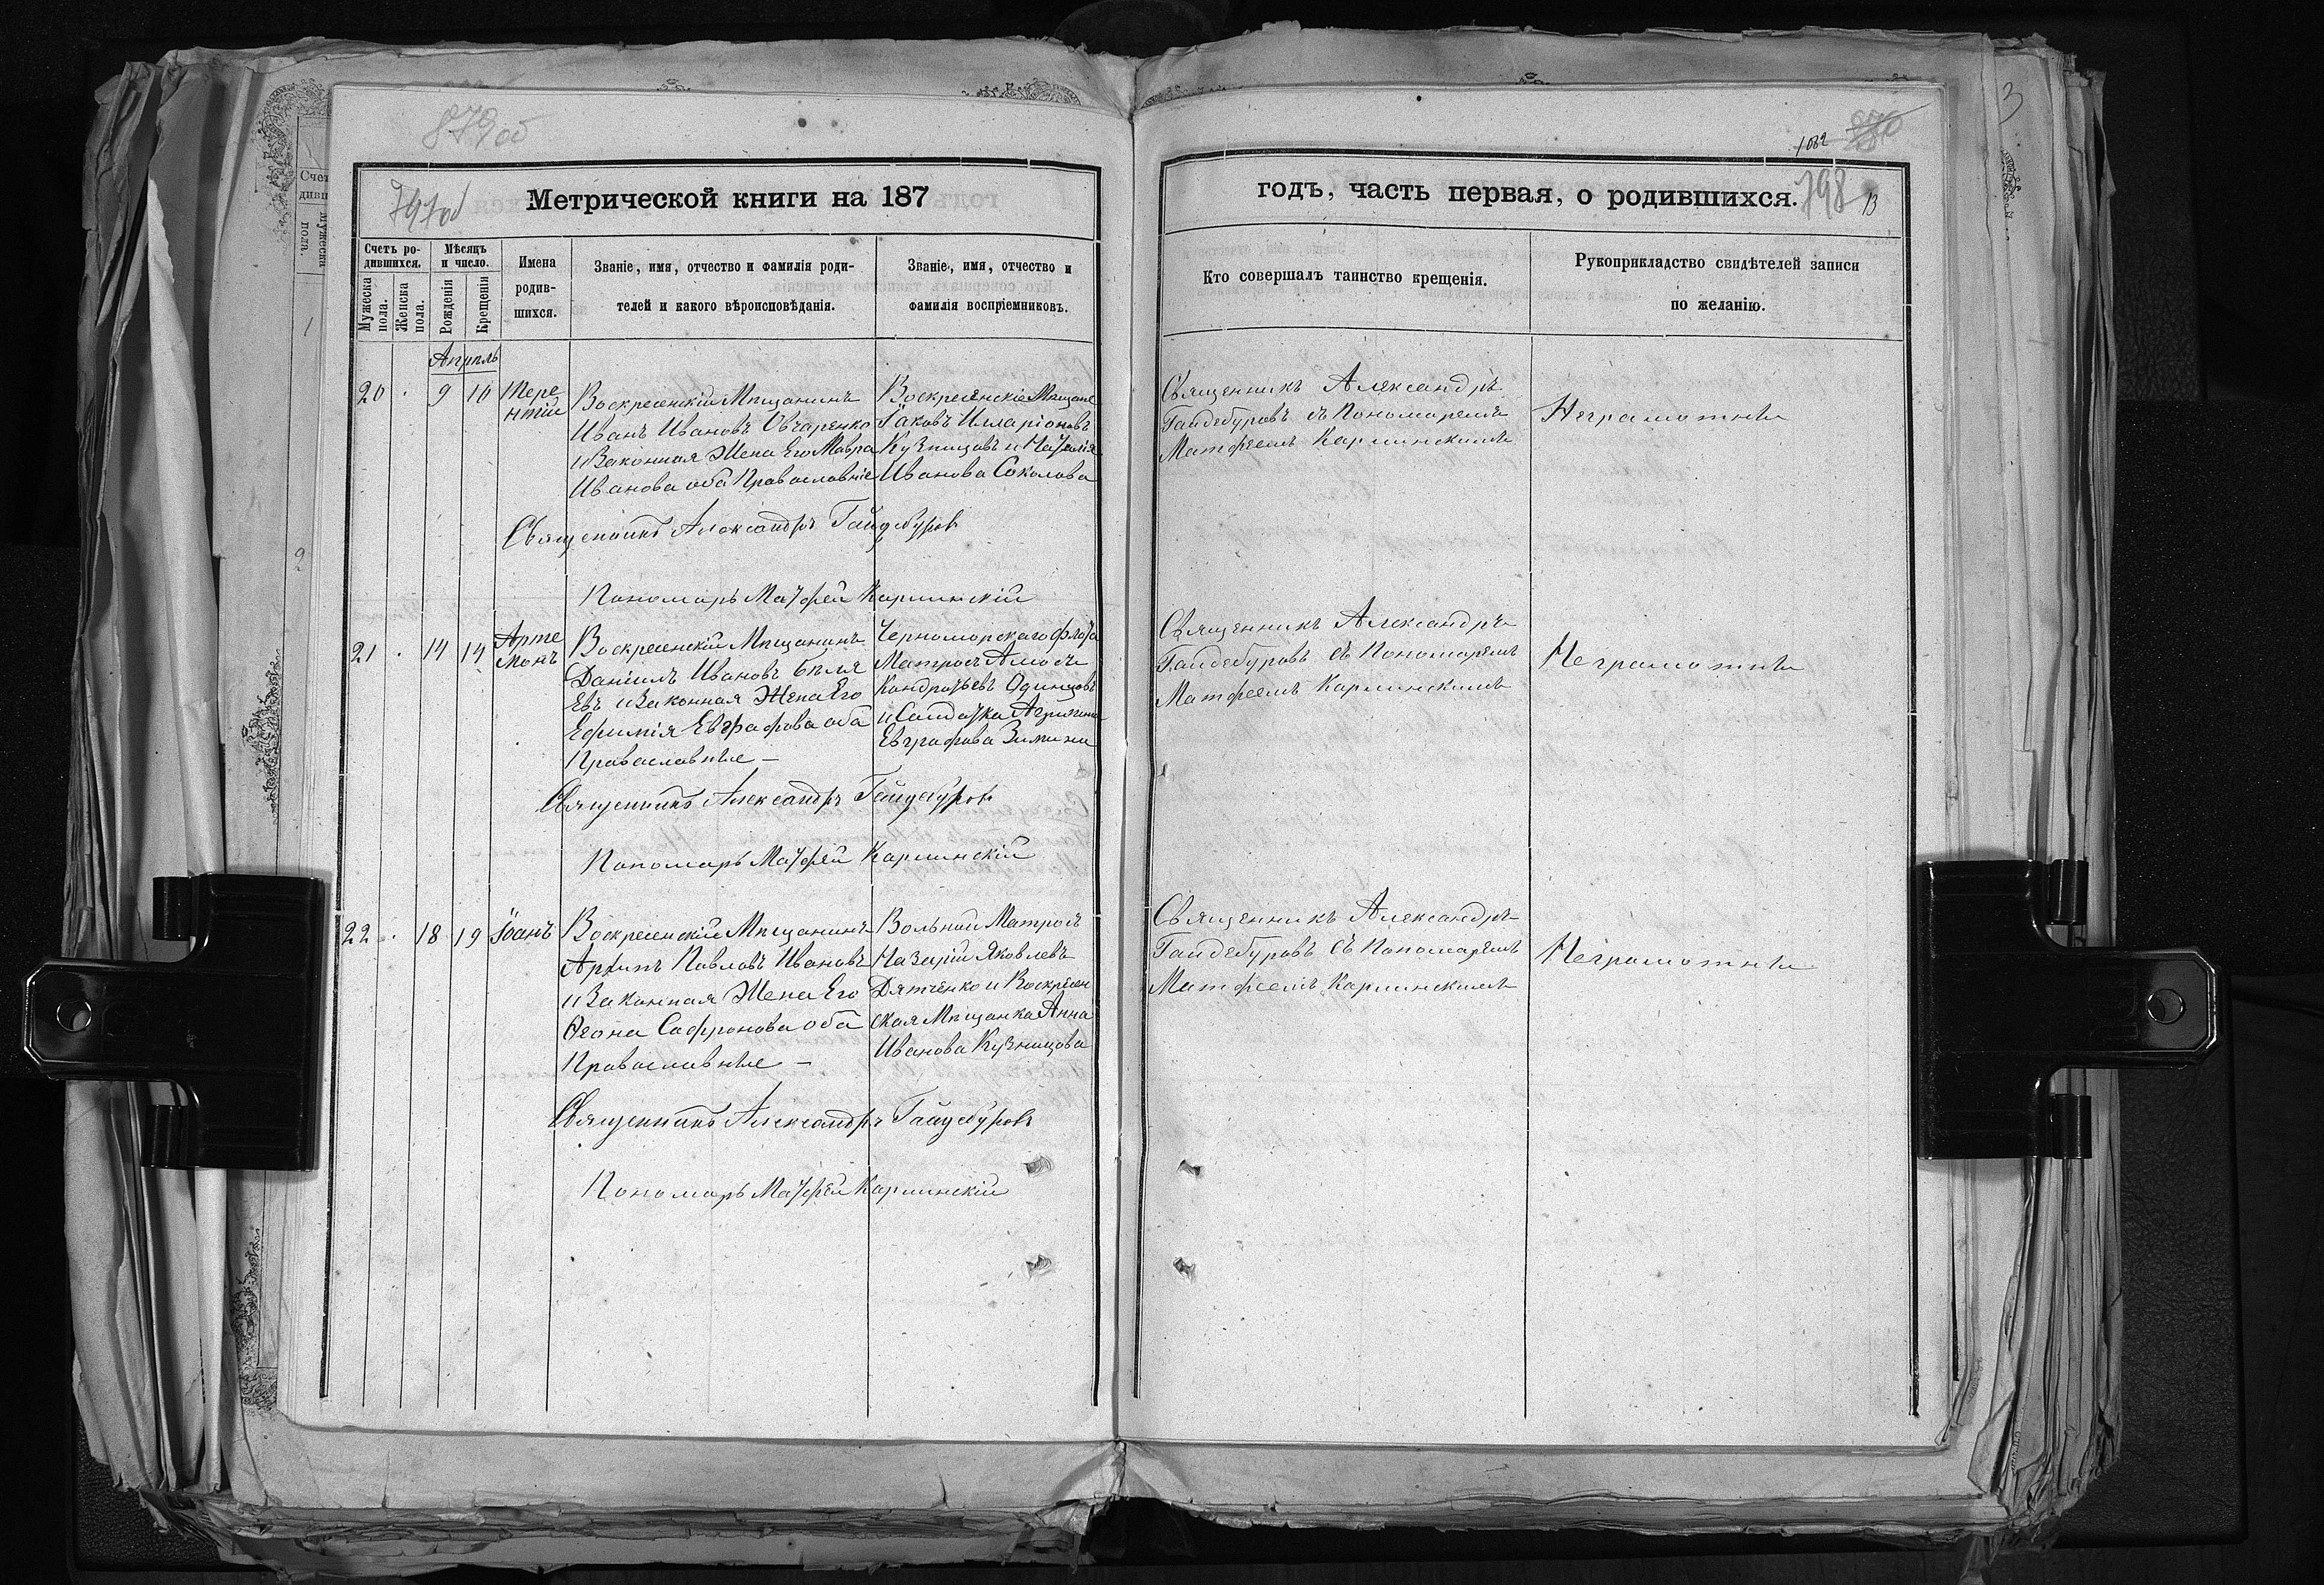 879об
1082 880
797об
Метрической книги на 187
годъ, часть первая, о родившихся.
798
13
3
Счетъ ро-
дившихся.
Мѣсяцъ
и число.
Мужеска
пола.
Женска
пола.
Рожденія
Крещенія
Имена
родив-
шихся.
Званіе, имя, отчество и фамилія роди-
телей и какого вѣроисповѣданія.
Званіе, имя, отчество и
фамилія воспріемниковъ.
Кто совершалъ таинство крещенія.
Рукоприкладство свидѣтелей записи
по желанію.
Апрѣль
20 9 10
Тере
нтій
Воскресенскій Мѣщанинъ
Иванъ Ивановъ Овчаренко
и Законная Жена Его Мавра
Иванова оба Православніе
Воскресенскіе Мещане
Іаковъ Илларіоновъ
Кузницовъ и Наталія
Иванова Соколова
Священникъ Александръ
Гайдебуровъ съ Пономаремъ
Матфеемъ Карминскимъ
Неграмотны
Священникъ Александръ Гайдебуровъ
Пономарь Матфей Карминскій
21 14 14
Арте
монъ
Воскресенскій Мѣщанинъ
Даніилъ Ивановъ Беля
Евъ и Законная Жена Его
Ефимія Евграфова оба
Православные —
Черноморскаго флота
Матросъ Амосъ
Кондратьевъ Одинцовъ
и Солдатка Агрипина
Евграфова Зимина
Священникъ Александръ
Гайдебуровъ съ Пономаремъ
Матфеемъ Карминскимъ
Неграмотны
Священникъ Александръ Гайдебуровъ
Пономарь Матфей Карминскій
22 18 19
Іоанъ
Воскресенскій Мѣщанинъ
Архипъ Павловъ Ивановъ
и Законная Жена Его
Ѳеона Сафронова оба
Православные —
Вольный Матросъ
Назарій Яковлевъ
Дятченко и Воскресен
ская Мѣщанка Анна
Иванова Кузницова
Священникъ Александръ
Гайдебуровъ съ Пономаремъ
Матфеемъ Карминскимъ
Неграмотны
Священникъ Александръ Гайдебуровъ
Пономарь Матфей Карминскій